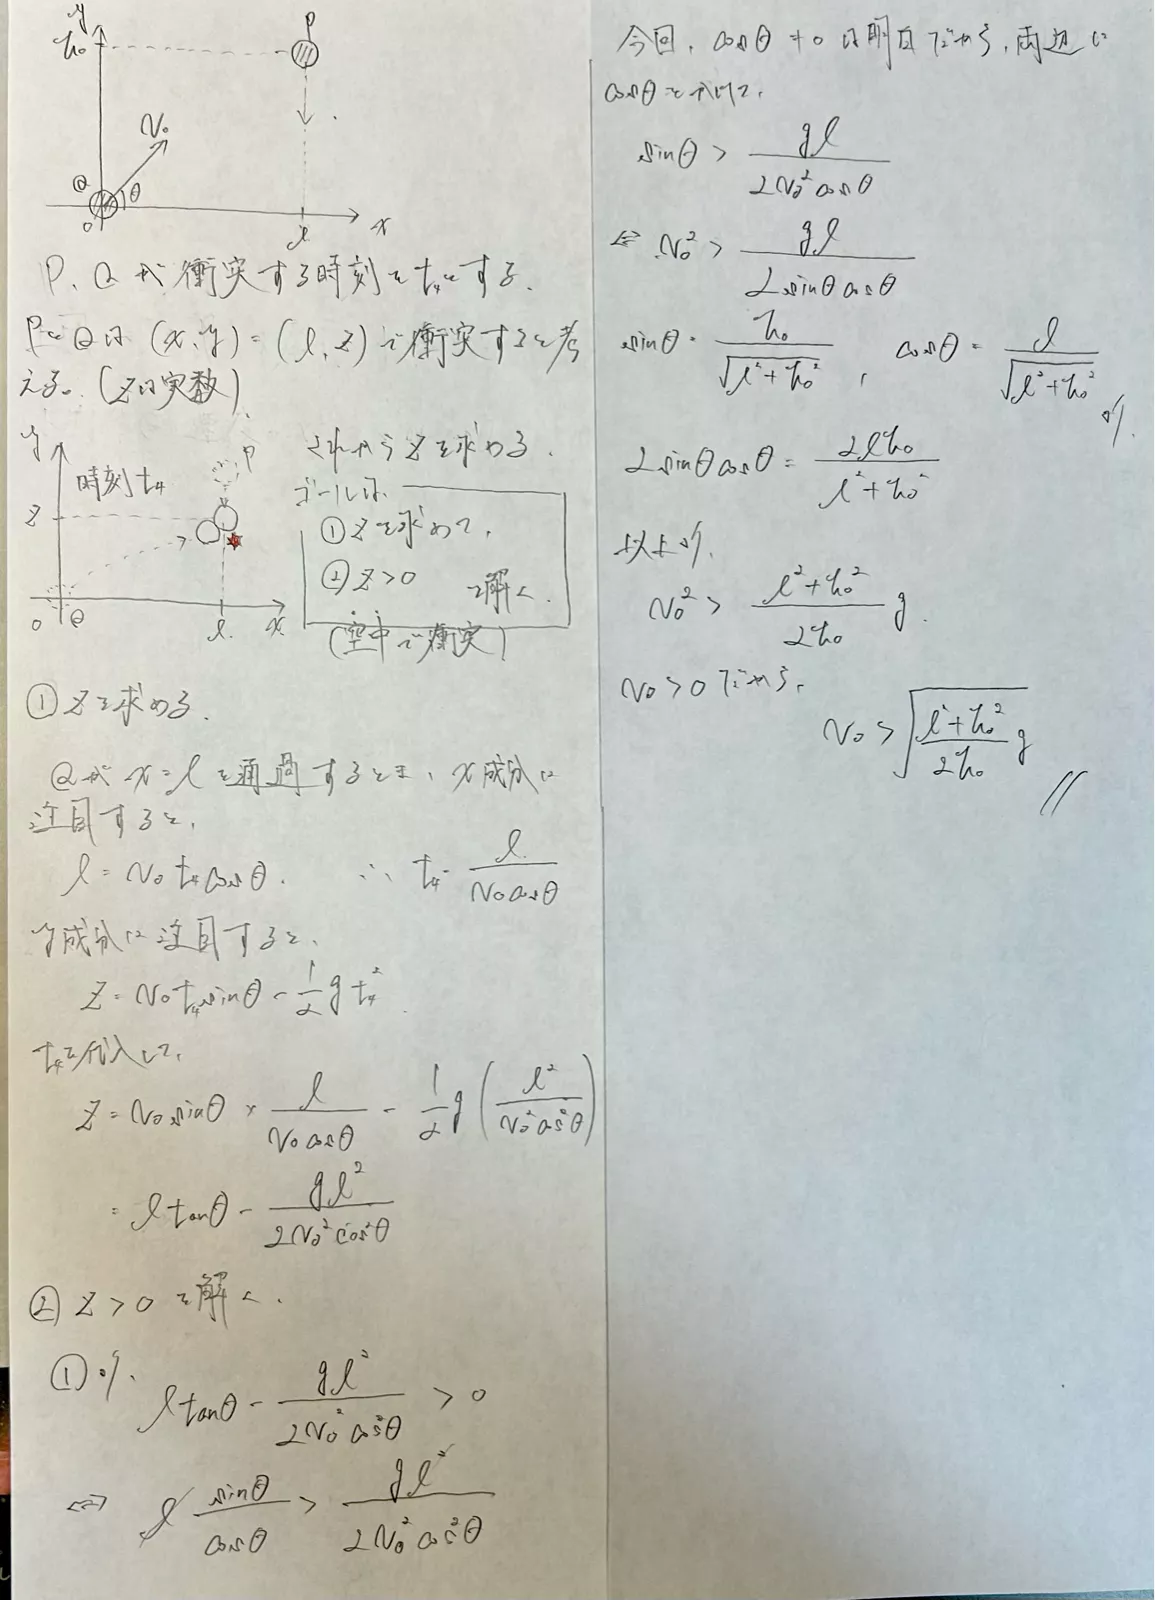 y
h₀
P
v₀
Q
θ
0
l
x
P、Qが衝突する時刻をt₄とする.
PとQは (x,y)=(l,z)で衝突すると考
える。(zは実数)
y
時刻t₄
P
z
0
Q
l
x
これからzを求める.
ゴールは
①zを求めて,
②z>0 を解く.
(空中で衝突)
①zを求める.
Qがx=lを通過するとき, x成分に
注目すると,
l=v₀t₄cosθ. ∴ t₄=l/(v₀cosθ)
y成分に注目すると,
z=v₀t₄sinθ-1/2 gt₄².
t₄を代入して,
z=v₀sinθ×l/(v₀cosθ)-1/2 g(l²/(v₀²cos²θ))
=ltanθ-gl²/(2v₀²cos²θ)
②z>0を解く.
①より,
ltanθ-gl²/(2v₀²cos²θ)>0
⇔ l sinθ/cosθ>gl²/(2v₀²cos²θ)
今回, cosθ≠0は明白だから, 両辺に
cosθをかけて,
sinθ>gl/(2v₀²cosθ)
⇔ v₀²>gl/(2sinθcosθ)
sinθ=h₀/√(l²+h₀²), cosθ=l/√(l²+h₀²) より,
2sinθcosθ=2lh₀/(l²+h₀²)
以上より,
v₀²>(l²+h₀²)/(2h₀) g.
v₀>0だから,
v₀>√((l²+h₀²)/(2h₀) g)
//